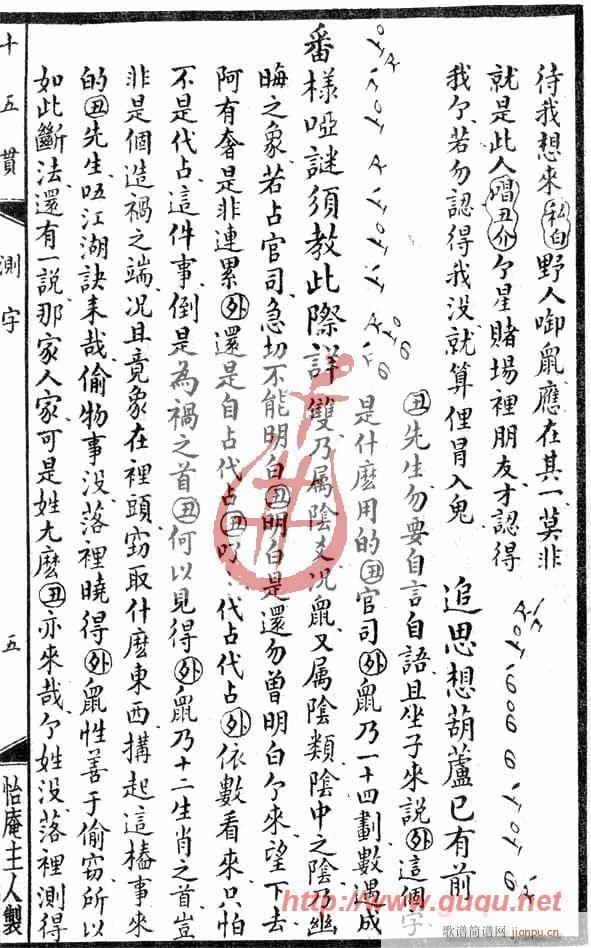 待我想來私白野人啣鼠應在其一莫非
就是此人唱丑介亇星賭場裡朋友才認得
我亇若勿認得我沒就算俚冐入鬼
追思想葫蘆已有前
丑先生勿要自言自語且坐子來說外這個字
是什麽用的丑官司外鼠乃一十四劃數是成
番樣啞謎須教此際詳雙乃属陰爻况鼠又属陰類陰中之陰乃幽
晦之象若占官司急切不能明白丑明白是還勿曾明白亇來望下去
阿有奢是非連累外還是自占代占丑叮代占代占外依數看來只怕
不是代占這件事倒是為禍之首丑何以見得外鼠乃十二生肖之首豈
非是個造禍之端况且竟象在裡頭竊取什麽東西搆起這樁事來
的丑先生𠵽江湖訣来哉偷物事没落裡曉得外鼠性善于偷竊所以
如此斷法還有一說那家人家可是姓尤麽丑亦來哉亇姓没落裡測得
十五貫
測字
五
怡庵主人製
http://www.guqu.net
歌谱简谱网
jianpu.cn